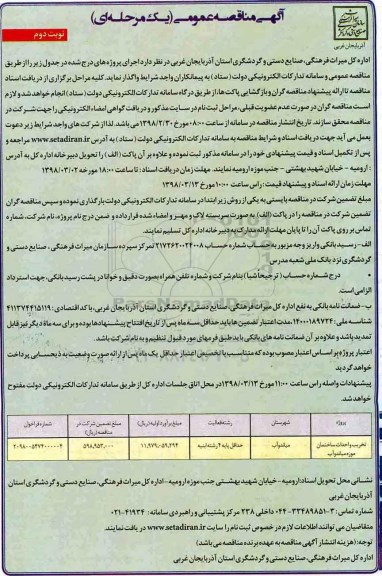 آگهی مناقصه عمومی (یک مرحله‌ای)
نوبت دوم
آذربایجان غربی
اداره کل میراث فرهنگی، صنایع دستی و گردشگری استان آذربایجان غربی در نظر دارد اجرای پروژه های درج شده در جدول زیر را از طریق
مناقصه عمومی و سامانه تدارکات الکترونیکی دولت ( ستاد ) به پیمانکاران واجد شرایط واگذار نماید. کلیه مراحل برگزاری از دریافت اسناد
مناقصه تا ارائه پیشنهاد مناقصه گران و بازگشایی پاکت ها، از طریق درگاه سامانه تدارکات الکترونیکی دولت ( ستاد ) انجام خواهد شد و لازم
است مناقصه گران در صورت عدم عضویت قبلی، مراحل ثبت نام در سایت مذکور و دریافت گواهی امضاء الکترونیکی را جهت شرکت در
مناقصه محقق سازند. تاریخ انتشار مناقصه در سامانه از ساعت ۰۸:۰۰ مورخ ۱۳۹۸/۰۲/۳۰ می باشد. لذا از شرکت های واجد شرایط زیر دعوت
بعمل می آید جهت دریافت اسناد و شرایط مناقصه به سامانه تدارکات الکترونیکی دولت ( ستاد ) به آدرس www.setadiran.ir مراجعه و
پس از تکمیل اسناد و قیمت پیشنهادی خود را در سامانه مذکور ثبت نموده و علاوه بر آن پاکت (الف) را تحویل دبیرخانه اداره کل به آدرس
: ارومیه - خیابان شهید بهشتی - جنب موزه ارومیه نمایند. مهلت زمان دریافت اسناد : تا ساعت ۱۸:۰۰ مورخه ۱۳۹۸/۰۳/۰۲
مهلت زمان ارائه اسناد و پیشنهاد قیمت : راس ساعت ۱۰:۰۰ مورخ ۱۳۹۸/۰۳/۱۳
مبلغ تضمین شرکت در مناقصه بایستی به یکی از روش زیر ابتدا در سامانه تدارکات الکترونیکی دولت بارگذاری نموده و سپس مناقصه گران
تضمین شرکت در مناقصه را در پاکت (الف) به صورت سربسته لاک و مهر و امضاء شده قرارداده و ضمن درج نام پروژه، نام شرکت، شماره
تماس بر روی پاکت آن را تا پایان مهلت ارائه مدارک به دبیرخانه اداره کل تسلیم نمایند.
الف - رسید بانکی واریز وجه مزبور به حساب شماره حساب ۲۱۷۲۶۲۰۰۲۴۰۰۸ تمرکز سپرده سازمان میراث فرهنگی، صنایع دستی و
گردشگری نزد بانک ملی شعبه مدرس
درج شماره حساب ( ترجیحا شبا ) بنام شرکت و شماره تلفن همراه بصورت دقیق و خوانا در پشت رسید بانکی، جهت استرداد
الزامی است.
ب - ضمانت نامه بانکی به نفع اداره کل میراث فرهنگی، صنایع دستی و گردشگری استان آذربایجان غربی، با کد اقتصادی : ۴۱۱۳۷۴۴۱۸۱۱۹
شناسه ملی : ۱۴۰۰۰۱۸۹۷۲۴ مدت اعتبار تضمین ها باید حداقل سه ماه پس از تاریخ افتتاح پیشنهادها بوده و برای سه ماه دیگر نیز قابل
تمدید باشد و علاوه بر آن ضمانت نامه های بانکی باید طبق فرمهای مورد قبول تنظیم و به نام شرکت باشد.
اعتبار پروژه بر اساس اعتبار مصوب بوده که متناسب با تخصیص اعتبار حداقل یک ماه پس از ارائه صورت وضعیت به ذیحسابی پرداخت
خواهد گردید
پیشنهادات واصله راس ساعت ۱۱:۰۰ مورخ ۱۳۹۸/۰۳/۱۳ در محل اتاق جلسات اداره کل از طریق سامانه تدارکات الکترونیکی دولت مفتوح
خواهد شد.
پروژه شهرستان رشته فعالیت مبلغ برآورد اولیه (ریال) مبلغ تضمین شرکت در مناقصه (ریال) شماره فراخوان
تخریب و احداث ساختمان موزه میاندوآب میاندوآب حداقل پایه ۴ رشته ابنیه ۱۱,۹۷۹,۰۵۹,۲۹۴ ۵۹۸,۹۵۳,۰۰۰ ۲۰۹۸۰۰۵۴۷۴۰۰۰۰۰۴
نشانی محل تحویل اسناد: ارومیه - خیابان شهید بهشتی جنب موزه ارومیه - اداره کل میراث فرهنگی، صنایع دستی و گردشگری استان
آذربایجان غربی
شماره تماس : ۳-۳۳۴۸۹۸۵۱-۰۴۴ داخلی ۲۳۸ مرکز پشتیبانی و راهبردی سامانه : ۴۱۹۳۴-۰۲۱
متقاضیان می توانند اطلاعات لازم در خصوص ثبت نام را سایت www.setadiran.ir دریافت نمایند.
توجه: (هزینه انتشار آگهی مناقصه به عهده برنده مناقصه می باشد)
اداره کل میراث فرهنگی، صنایع دستی و گردشگری استان آذربایجان غربی